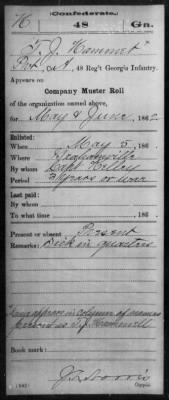 (Confederate.)
H 48 Ga.
T. J. Hammet
Pvt Co. A, 48 Reg't Georgia Infantry.
Appears on
Company Muster Roll
of the organization named above,
for May & June, 1862.
Enlisted:
When May 5, 186
Where Grahamville
By whom Capt Kelley
Period 3 years or war
Last paid:
By whom
To what time , 186 .
Present or absent Present
Remarks: Sick in quarters
Name appears in column of names
as T. J. Hammett
Book mark:
Copyist.